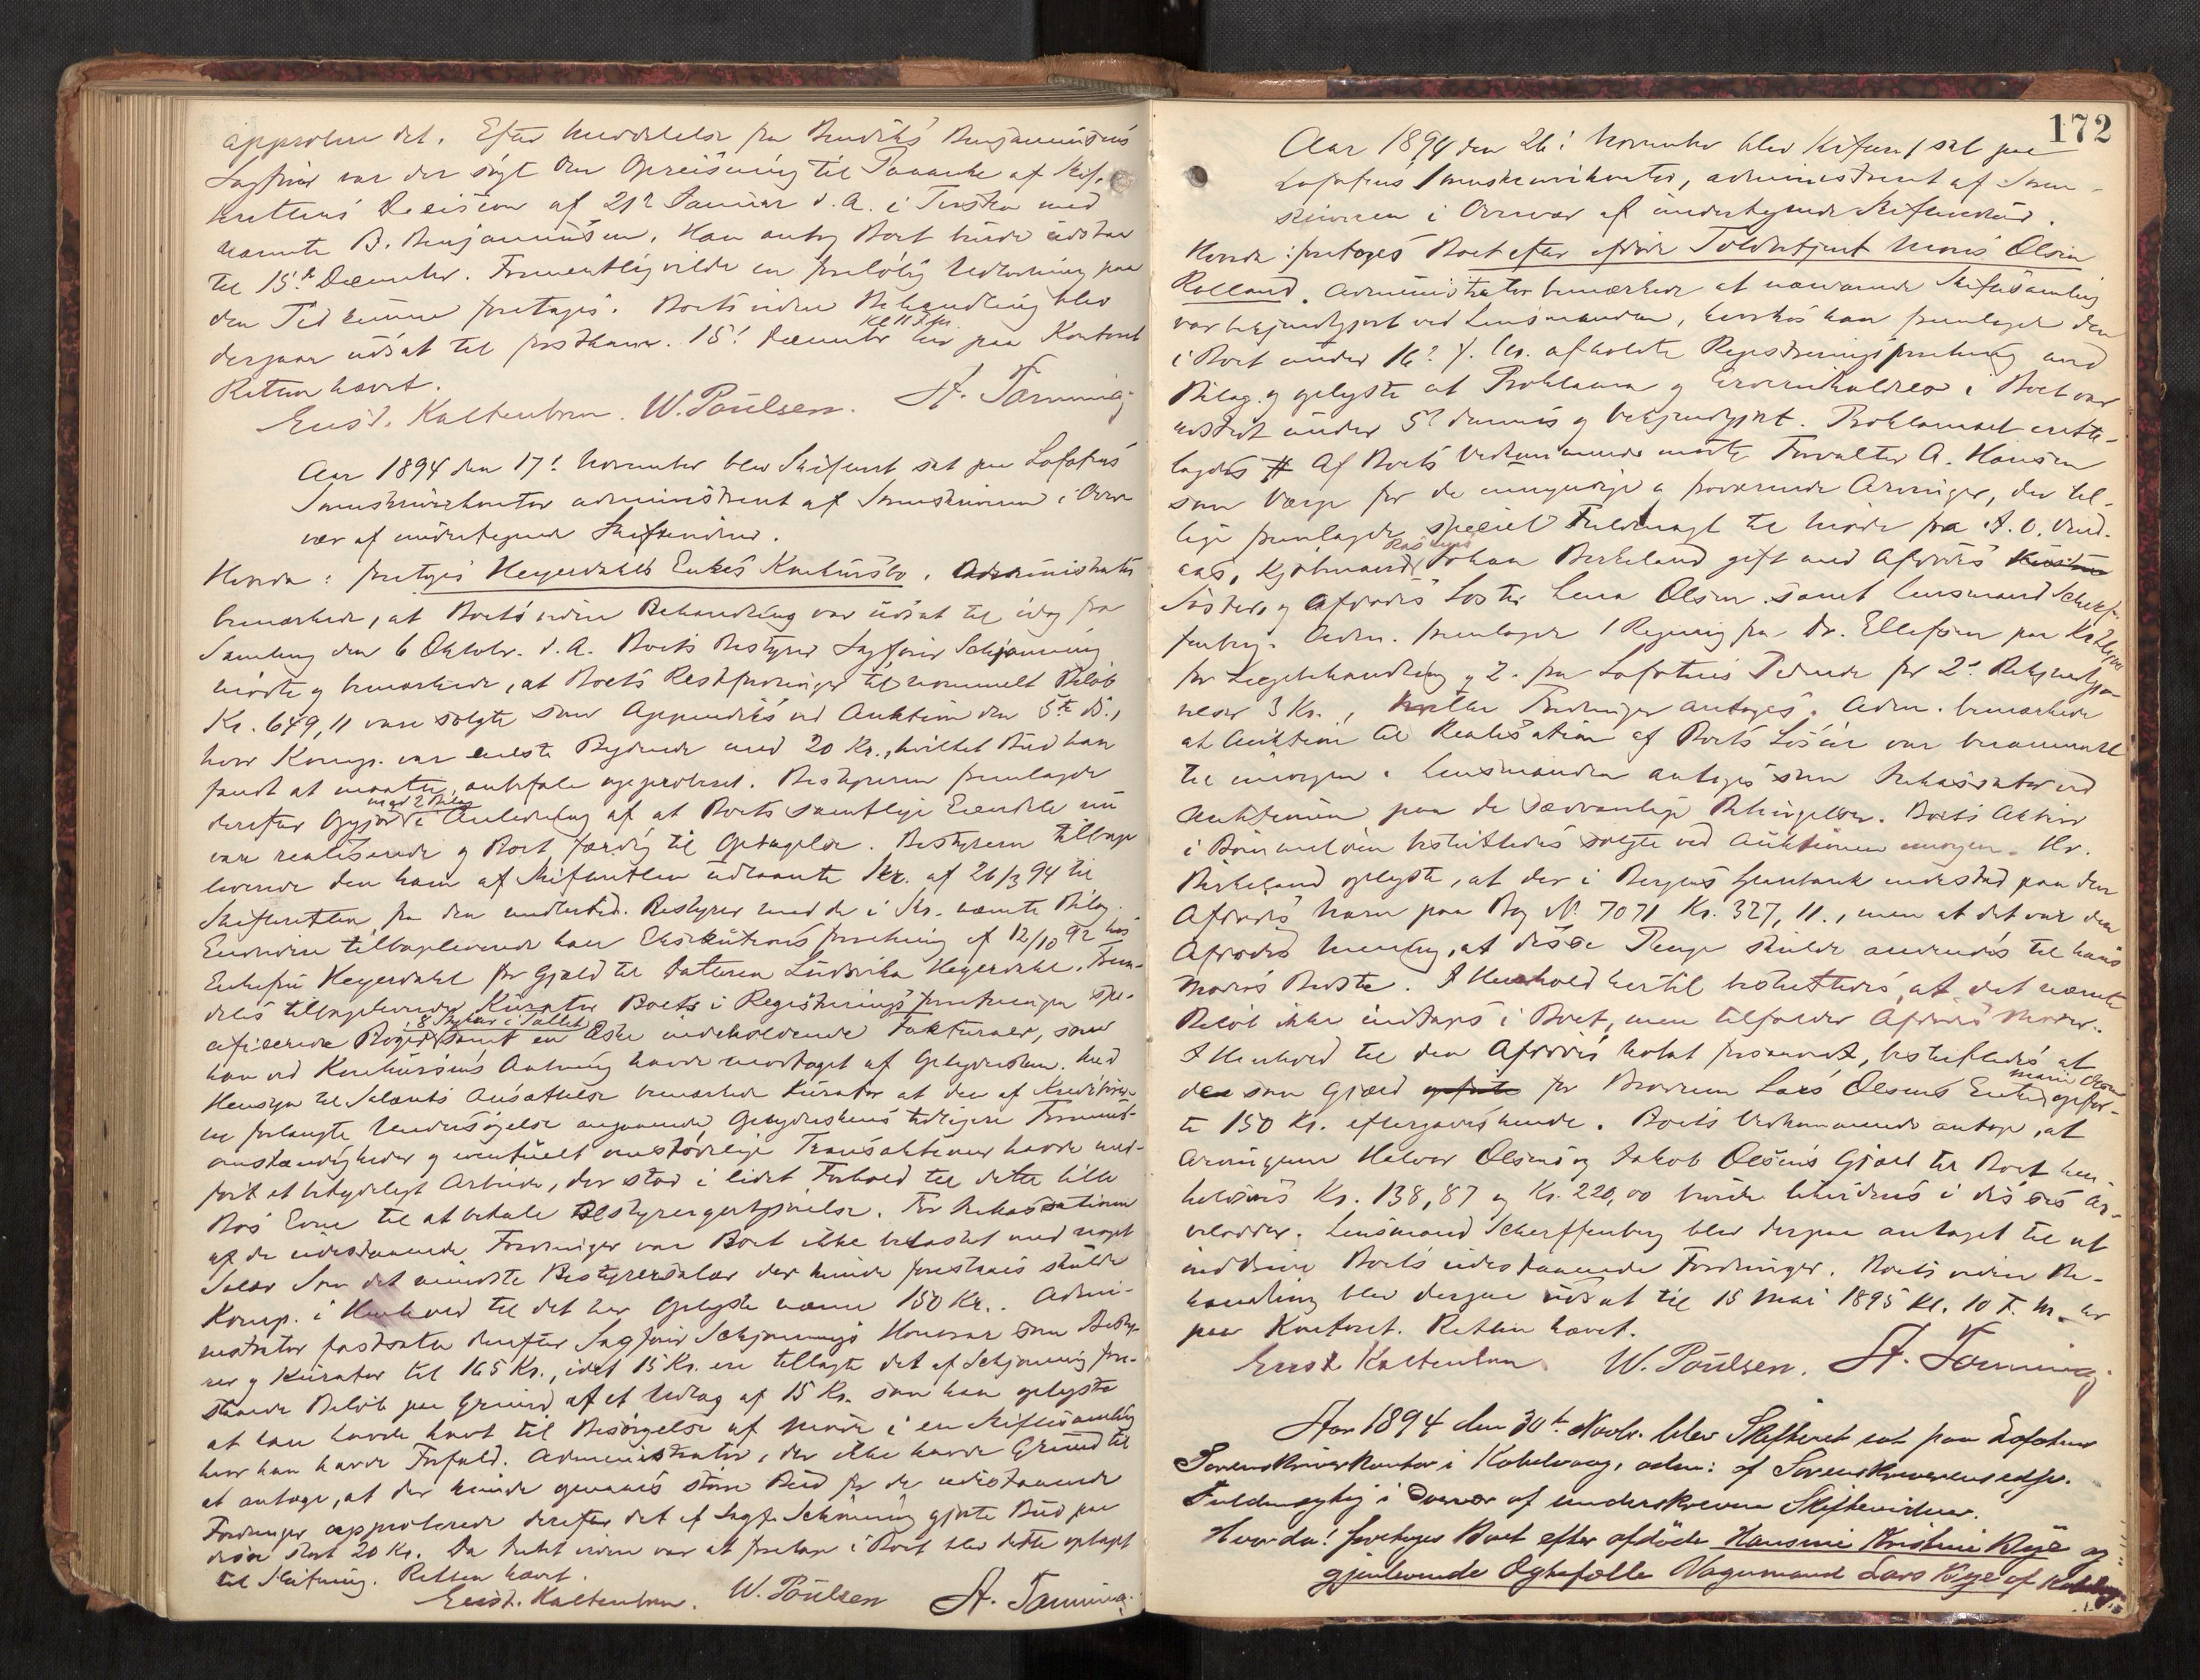 approbere det. Efter Meddelelse fra Bendiks Benjaminsens
Sagfører var der søgt om Opreisning til Paaanke af Skif-
terettens Decision af 21de Januar d. A. i Tvisten med
nævnte B. Benjaminsen. Han antog Boet burde udstaa
til 15de December. Formentlig vilde en foreløbig Udlodning paa
den Tid kunne foretages. Boets videre Behandling blev
derpaa udsat til førstkomm. 15. December Kl 11 F.M. her paa Kontoret
Retten hævet.
Ernst. Kaltenborn. W. Poulsen. A. Tanning
Aar 1894 den 17. November blev Skifteret sat paa Lofotens
Sorenskriverkontor administreret af Sorenskriveren i Over
vær af undertegnede Skiftevidner.
Hvorda: foretoges Heyerdahls Enkes Konkursbo. Administrator
bemærkede, at Boets videre Behandling var udsat til idag fra
Samling den 6 Oktobr. d. A. Boets Bestyrer Sagfører Schjønning
mødte og bemærkede, at Boets Restfordringer til nominelt Beløb
Kr. 649,11 vare solgte som Appendiks ved Auktion den 5te ds.,
hvor Komp. var eneste Bydende med 20 Kr., hvilket Bud han
fandt at maatte anbefale approberet. Bestyreren fremlagde
derefter Opgjør med 2 Bilag i Anledning af at Boets samtlige Eiendele nu
vare realiserede og Boet færdig til Optagelse. Bestyreren tilbage
leverede den ham af Skifteretten udlaante Skr. af 26/3 94 til
Skifteretten fra den undertid. Bestyrer med de i Skr. nævnte Bilag.
Endvidere tilbageleverede han Eksekutionsforretning af 12/10 92 hos
Enkefru Heyerdahl for Gjæld til Datteren Ludovika Heyerdahl. Frem-
deles tilbageleverede Kurator Boets i Registreringsforretningen spe-
cificerede Bøger, 8 Stykker i Tallet samt en Æske indeholdende Fakturaer, som
han ved Konkursens Aabning havde modtaget af Gjelydersken. Med
Hensyn til Salærets Ansættelse bemærkede Kurator at den af Kreditorer-
ne forlangte Undersøgelse angaaende Gjelyderskens tidligere Formues-
omstændigheder og eventuelt omstødelige Transaktioner havde med-
ført et betydeligt Arbeide, der stod i lidet Forhold til dette lille
Bos Evne til at betale Bestyrergodtgjørelse. For Inkassationen
af de udestaaende Fordringer var Boet ikke belastet med noget
Salær. Som det mindste Bestyrersalær der kunde forestaaes skulde
Komp. i Henhold til det her Oplyste nævne 150 Kr.. Admi-
nistrator fastsatte derefter Sagfører Schjønnings Honorar som Besty-
rer og Kurator til 165 Kr., idet 15 Kr. ere tillagte det af Schjønning fore-
slaaede Beløb paa Grund af et Udlæg af 15 Kr. som han oplyste
at han havde havt til Besørgelse af Møde i en Skiftesamling
hvor han havde Forfald. Administrator, der ikke havde Grund til
at antage, at der kunde opnaaes større Bud for de udestaaende
Fordringer approberede derefter det af Sagf. Schjønning gjorte Bud paa
disse stort 20 Kr. Da Intet videre var at foretage i Boet blev dette optaget
til Slutning. Retten hævet.
Ernst. Kaltenborn. W. Poulsen A. Tanning.
172
Aar 1894 den 26. November blev Skifteret sat paa
Lofotens Sorenskriverkontor, administreret af Soren-
skriveren i Overvær af undertegnede Skiftevidner.
Hvorda: foretoges Boet efter afdøde Toldbetjent Mons Olsen
Rolland. Administrator bemærkede at nærværende Skiftesamling
var bekjendtgjort ved Lensmanden, hvorhos han fremlagde den
i Boet under 16. f. M. afholdte Registreringsforretning med
Bilag og oplyste at Proklama og Arveindkaldelse i Boet var
udstedt under 5. dennes og bekjendtgjort. Proklamaet irette-
lagdes # Af Boets Vedkommende mødte Forvalter A. Hansen
som Værge for de umyndige og fraværende Arvinger, der til-
lige fremlagde speciel Fuldmagt til Møde fra A. O. Vind-
aas, Kjøbmand Rasmus Johan Birkeland gift med Afdødes
Søster, og Afdødes Søster Lena Olsen samt Lensmand Scherf-
fenberg. Adm. fremlagde 1 Regning fra Dr. Ellefsen paa Kr
for Lægebehandling og 2. fra Lofotens Tidende for 2. Bekjendtgjø-
relser 3 Kr., hvilke Fordringer antoges. Adm. bemærkede
at Auktion til Realisation af Boets Løsøre var berammet
til imorgen. Lensmanden antoges som Inkassator ved
Auktionen paa de sædvanlige Betingelser. Boets Aktier
i besluttedes solgte ved Auktionen imorgen. Hr.
Birkeland oplyste, at der i Bergens Sparebank indestod paa den
Afdødes Navn paa Bog No. 7071 Kr. 327,11., men at det var den
Afdødes Mening, at disse Penge skulde anvendes til hans
Moders Bedste. I Henhold hertil besluttedes, at det nævnte
Beløb ikke indtages i Boet, men tilfalder Afdødes Moder.
I Henhold til den Afdødes Notat forsaavidt, besluttedes at
den som Gjæld for Broderen Lars Olsens Enke Marie Olsen opfør-
te 150 Kr. eftergaves hende. Boets Vedkommende antog, at
Arvingerne Halvor Olsens og Jakob Olsens Gjæld til Boet hen-
holdsvis Kr. 138,87 og Kr. 220,00 burde likvideres i disses Ar-
velodder. Lensmand Scherffenberg blev derpaa antaget til at
inddrive Boets udestaaende Fordringer. Boets videre Be-
handling blev derpaa udsat til 15 Mai 1895 Kl. 10 F. M. her
paa Kontoret. Retten hævet.
Ernst Kaltenborn. W. Poulsen. A. Tanning
Aar 1894 den 30te Novbr. blev Skifteret sat paa Lofotens
Sorenskriverkontor i Kabelvaag, adm: af Sorenskriverens edsv.
Fuldmægtig i Overvær af underskrevne Skiftevidner.
Hvorda! foretoges Boet efter afdøde Hansine Kristine Rye og
gjenlevende Ægtefælle Vognmand Lars Rye af Kabelvaag